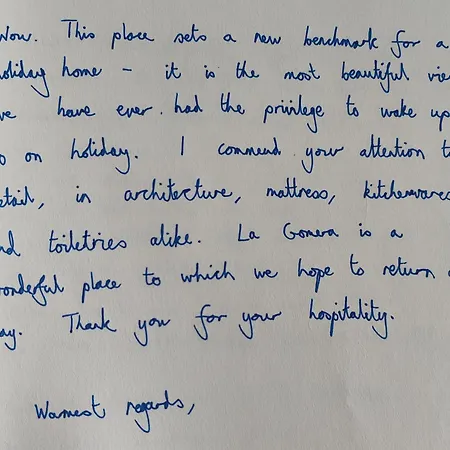 Wow. This place sets a new benchmark for a
holiday home – it is the most beautiful vie
we have ever had the privilege to wake up
to on holiday. I commend your attention t
etail, in architecture, mattress, kitchenwares
nd toiletries alike. La Gomera is a
wonderful place to which we hope to return o
ay. Thank you for your hospitality.
Warmest regards,